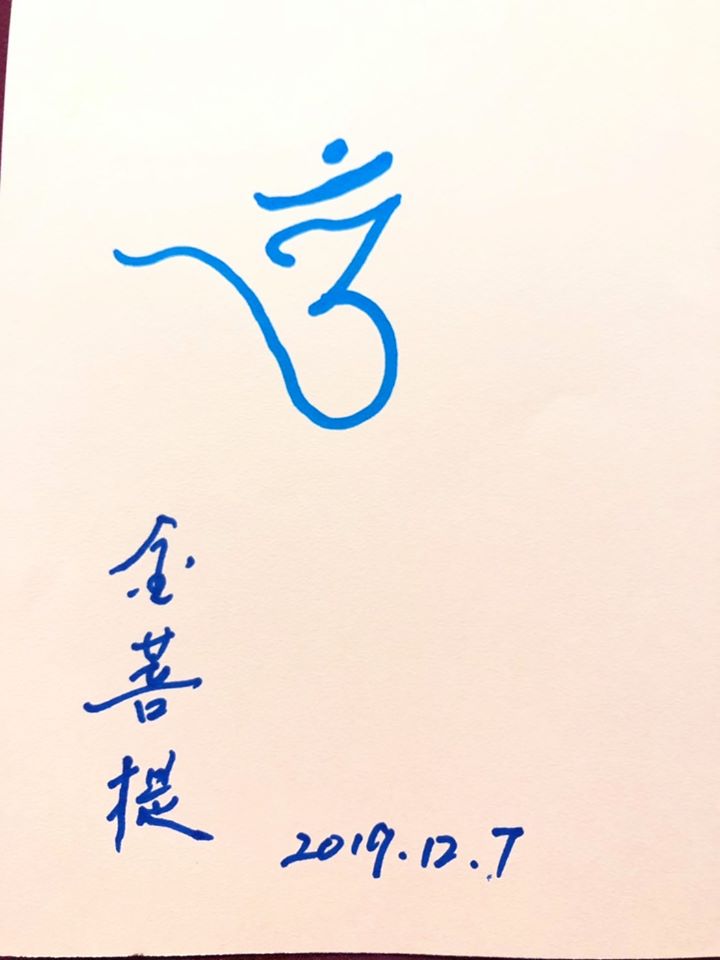 金菩提
2019.12.7